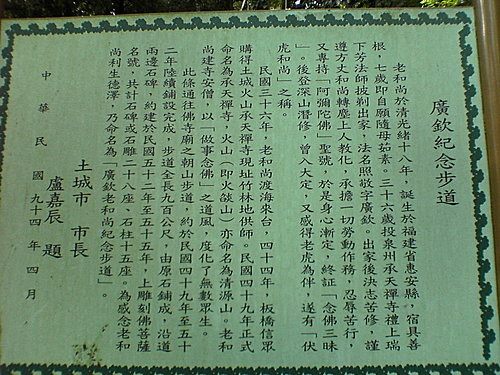 廣欽紀念步道
老和尚於清光緒十八年，誕生於福建省惠安縣，宿具善
根，七歲即自願隨母茹素。三十六歲投泉州承天禪寺禮上瑞
下芳法師披剃出家，法名照敬字廣欽。出家後決志苦修，謹
遵方丈和尚轉塵上人教化，承擔一切勞動作務，忍辱苦行，
又專持「阿彌陀佛」聖號，於是身心漸定，終証「念佛三昧
」。後登深山潛修，曾入大定，又感得老虎為伴，遂有「伏
虎和尚」之稱。
民國三十六年，老和尚渡海來台，四十四年，板橋信眾
購得土城火山承天禪寺現址竹林地供師。民國四十九年正式
命名為承天禪寺，火山（即火燄山）亦命名為清源山。老和
尚建寺安僧，以「做事念佛」之道風，度化了無數眾生。
此條通往佛寺廟之朝山步道，約於民國四十九年至五十
二年陸續鋪設完成，步道全長九百公尺，由原石鋪成，沿道
兩邊石碑，約建於民國五十二年至五十五年，上雕刻佛菩薩
名號，共計石碑或石雕二十八座，石柱十五座。為感念老和
尚利生德澤，乃命名為「廣欽老和尚紀念步道」。
土城市 市長
盧嘉辰 題
中華民國九十四年四月